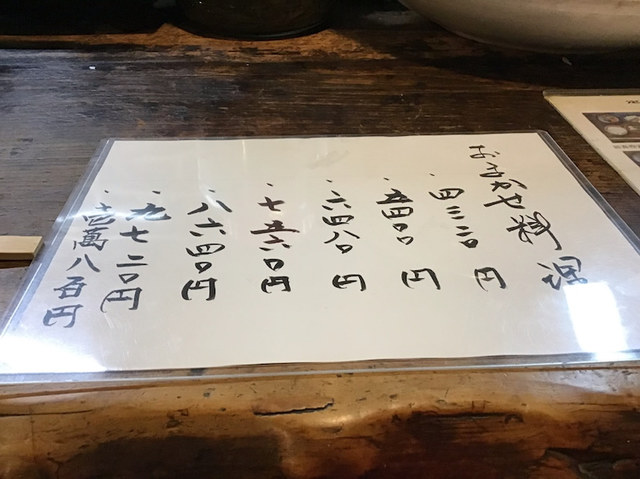 おまかせ料理
・四三二〇円
・五四〇〇円
・六四八〇円
・七五六〇円
・八六四〇円
・九七二〇円
・壱萬八百円